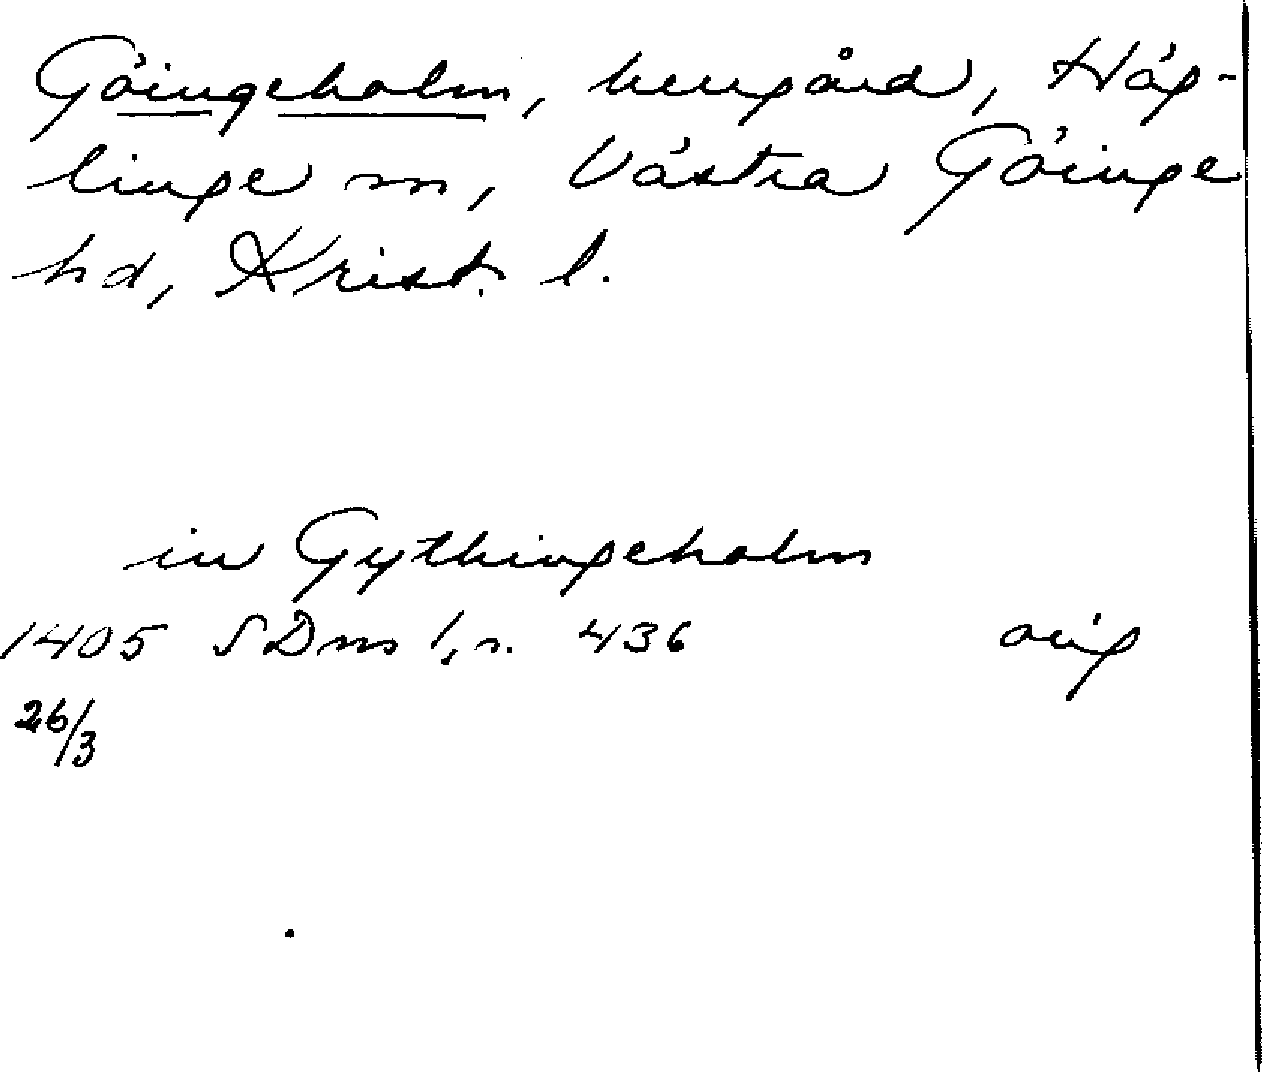 Göingeholm, herrgård, Häg-
linge sn, Västra Göinge
hd, Krist. l.
in Gythingeholm
1405 SDns 1, s. 436 orig
26/3